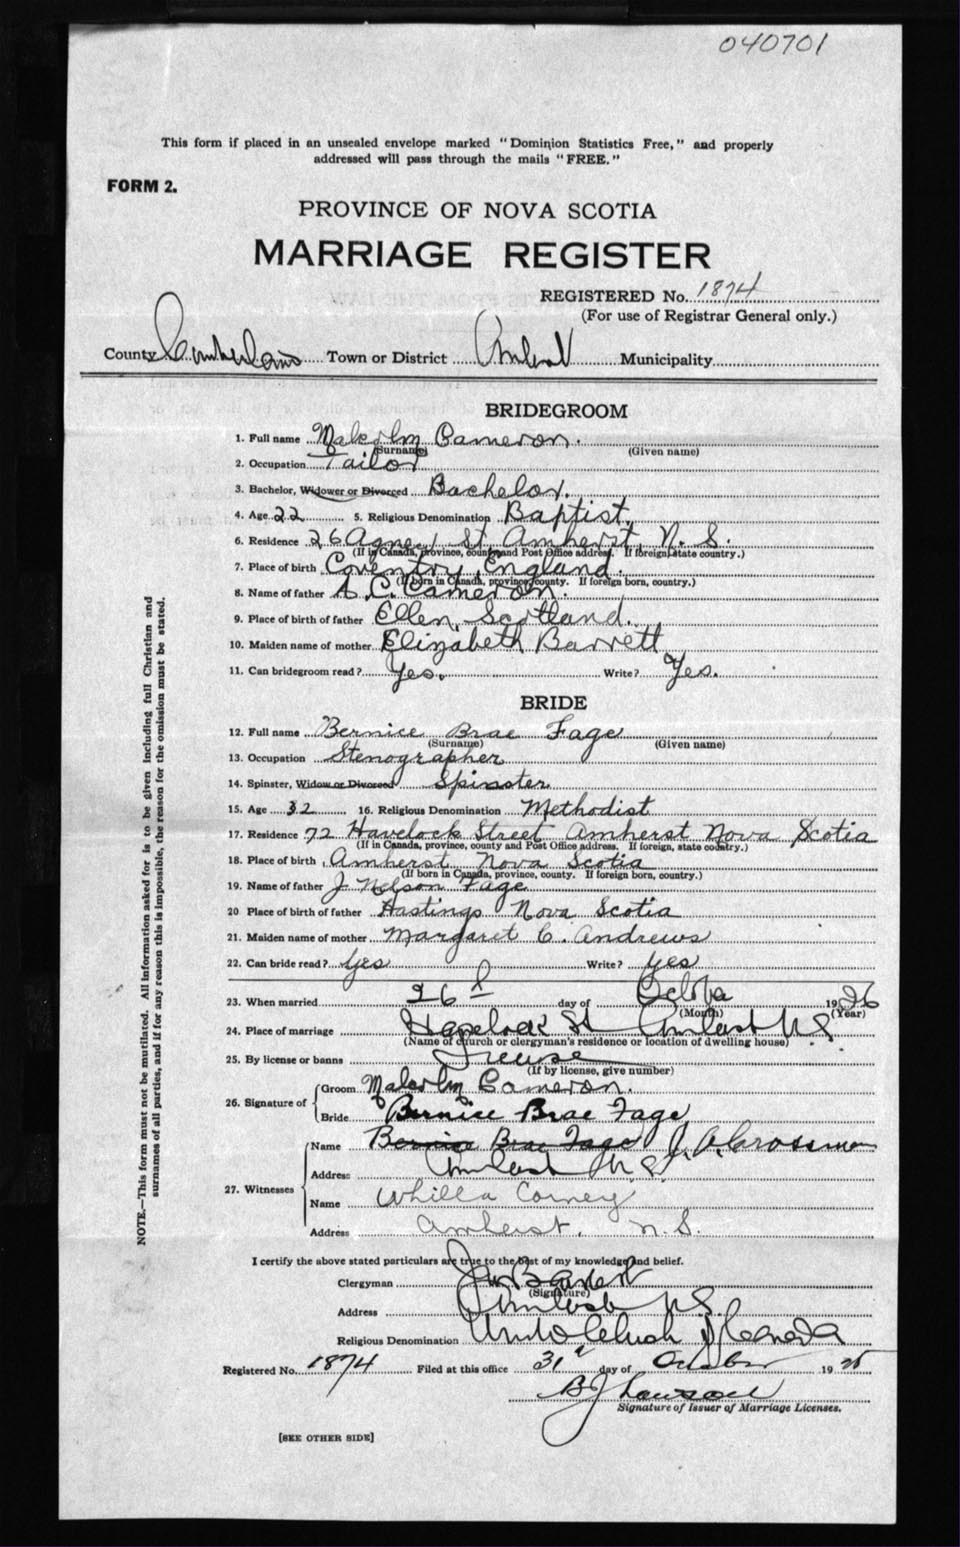 040701
This form if placed in an unsealed envelope marked "Dominion Statistics Free," and properly
addressed will pass through the mails "FREE."
FORM 2.
PROVINCE OF NOVA SCOTIA
MARRIAGE REGISTER
REGISTERED No. 1874
(For use of Registrar General only.)
County Cumberland Town or District Amherst Municipality
BRIDEGROOM
1. Full name Malcolm Cameron.
(Surname) (Given name)
2. Occupation Tailor
3. Bachelor, Widower or Divorced Bachelor.
4. Age 22 5. Religious Denomination Baptist.
6. Residence 26 Agnew St Amherst N. S.
(If in Canada, province, county and Post Office address. If foreign, state country.)
7. Place of birth Coventry, England.
(If born in Canada, province, county. If foreign born, country.)
8. Name of father A. C. Cameron.
9. Place of birth of father Ellen, Scotland.
10. Maiden name of mother Elizabeth Barrett
11. Can bridegroom read? Yes. Write? Yes.
BRIDE
12. Full name Bernice Brae Fage
(Surname) (Given name)
13. Occupation Stenographer
14. Spinster, Widow or Divorced Spinster
15. Age 32 16. Religious Denomination Methodist
17. Residence 72 Havelock Street Amherst Nova Scotia
(If in Canada, province, county and Post Office address. If foreign, state country.)
18. Place of birth Amherst Nova Scotia
(If born in Canada, province, county. If foreign born, country.)
19. Name of father J. Nelson Fage
20 Place of birth of father Hastings Nova Scotia
21. Maiden name of mother Margaret C. Andrews
22. Can bride read? Yes Write? yes
23. When married 26 day of October 1926
(Month) (Year)
24. Place of marriage Havelock St Amherst N.S.
(Name of church or clergyman's residence or location of dwelling house)
25. By license or banns License
(If by license, give number)
26. Signature of
Groom Malcolm Cameron.
Bride Bernice Brae Fage
27. Witnesses
Name Bernice Brae Fage J. A. Crossman
Address Amherst N.S.
Name Whilla Corney
Address Amherst, N.S.
I certify the above stated particulars are true to the best of my knowledge and belief.
Clergyman
(Signature)
Address Amherst N.S.
Religious Denomination United Church of Canada
Registered No. 1874 Filed at this office 31 day of October 19 26
Signature of Issuer of Marriage Licenses.
[SEE OTHER SIDE]
NOTE.—This form must not be mutilated. All information asked for is to be given including full Christian and
surnames of all parties, and if for any reason this is impossible, the reason for the omission must be stated.